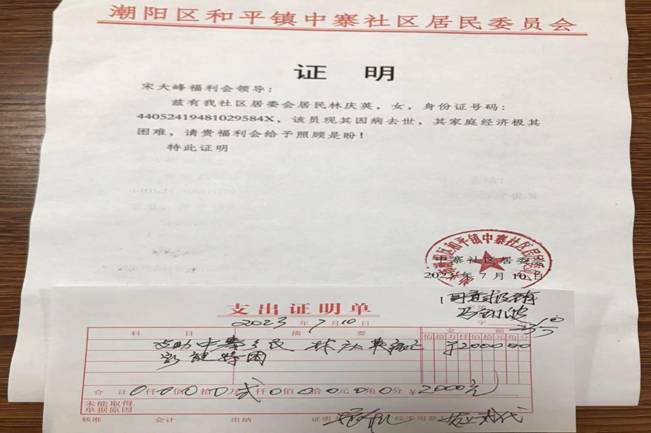 潮阳区和平镇中寨社区居民委员会
证 明
宋大峰福利会领导:
兹有我社区居委会居民林庆英,女,身份证号码:
44052419481029584X,该员现其因病去世,其家庭经济极其
困难,请贵福利会给予照顾是盼!
特此证明
和平镇中寨社区居
中寨社区居委会
2023年7月10日
支出证明单
2023年7月10日
科目 摘要 金额
佰拾万仟佰拾元角分
¥200000
合计 0佰0拾0万贰仟0佰0拾0元0角0分 ¥2000元
未能取得
单据原因
核准 会计 出纳 证明